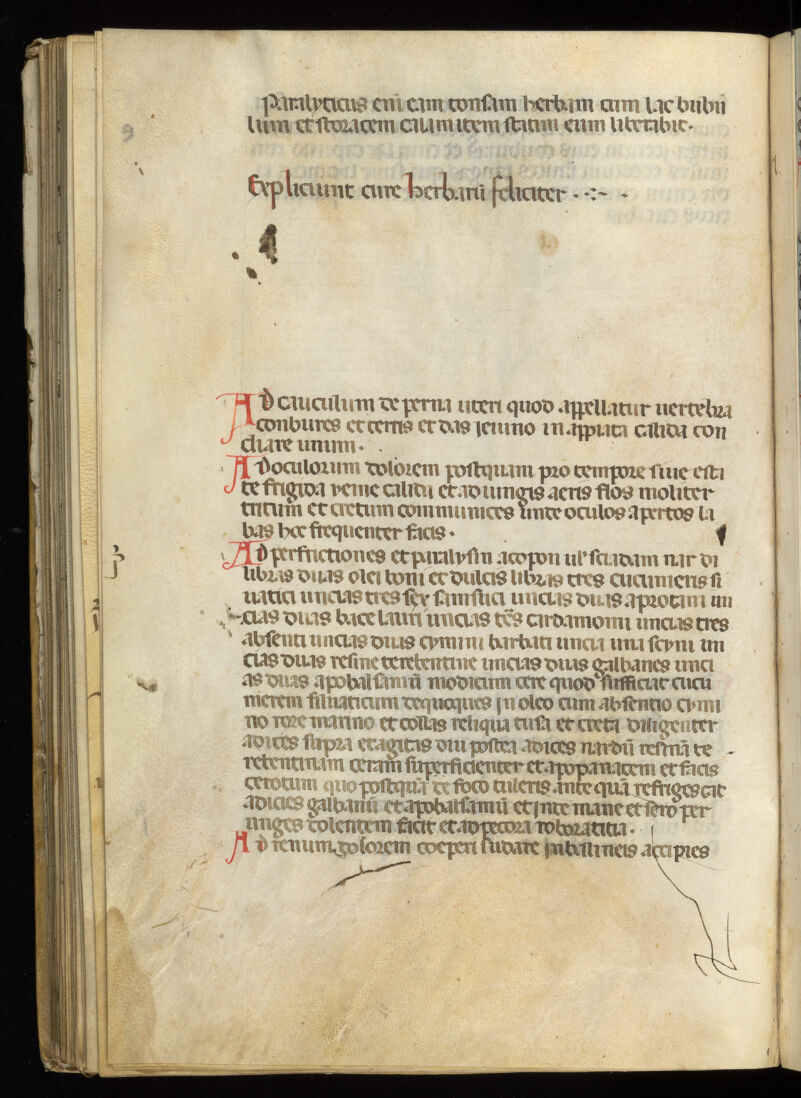 Paralyticus eni cam tonsam herbam cum lac bubu
lum et storacem calamitem statim eum liberabit.
Expliciunt cure herbarū feliciter
AD cauculum de perna uteri quod appellatur uertebra
conbures et ternis et das ieiuno in apputa calida con
diare unum.
AD oculorum dolorem postquam pro tempore siue esta
te frigida yeme calida et adiungis aeris flos moliter
tritum et cretum communices unte oculos apertos la
bas hec frequenter facis.
AD perfrictiones et paralysin acopon ul' sciadam nar di
libras duas olei boni et dulcis libras tres cucumeris si
uatici uncias tres sex samsuci uncias duas aprotani un
cias duas bace lauri uncias tēs cardamomi uncias tres
absenti uncias duas cymini barbati uncia una scyni un
cias duas resine terebentine uncias duas galbanes unci
as duas apobalsamū modicum cere quod sufficiat cucu
merem siluaticum dequoques in oleo cum absentio cymi
no rore marino et collas reliqua tusa et creta diligenter
adices supra et agitas diu postea adices nardū restriā te
rebentinam ceram superficienter et apopanacem et facis
cerotum quo postquā de foco tuleris ante quā refrigescat
adicies galbanū et apobalsamū et inte mane et sero per
unges dolentem facit et ad pecora roboratitia.
AD renum dolorem coeperi sudare in balineis accipies